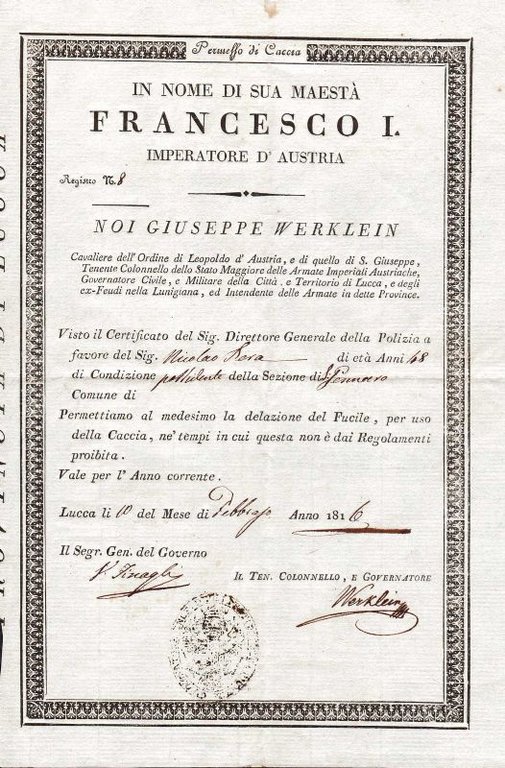 Permesso di Caccia
IN NOME DI SUA MAESTÀ
FRANCESCO I.
IMPERATORE D' AUSTRIA
Registro N. 8
NOI GIUSEPPE WERKLEIN
Cavaliere dell' Ordine di Leopoldo d' Austria, e di quello di S. Giuseppe,
Tenente Colonnello dello Stato Maggiore delle Armate Imperiali Austriache,
Governatore Civile, e Militare della Città, e Territorio di Lucca, e degli
ex-Feudi nella Lunigiana, ed Intendente delle Armate in dette Province.
Visto il Certificato del Sig. Direttore Generale della Polizia a
favore del Sig. Nicolao di età Anni 48
di Condizione possidente della Sezione di S. Gennaro
Comune di
Permettiamo al medesimo la delazione del Fucile, per uso
della Caccia, ne' tempi in cui questa non è dai Regolamenti
proibita.
Vale per l' Anno corrente.
Lucca li 10 del Mese di Febbrajo Anno 1816
Il Segr. Gen. del Governo
IL TEN. COLONNELLO, E GOVERNATORE
Werklein